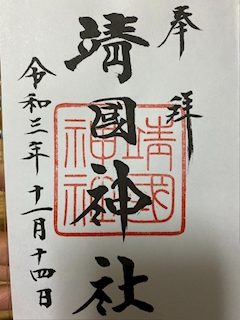 奉拝
靖國神社
靖國神社
令和三年十一月十四日